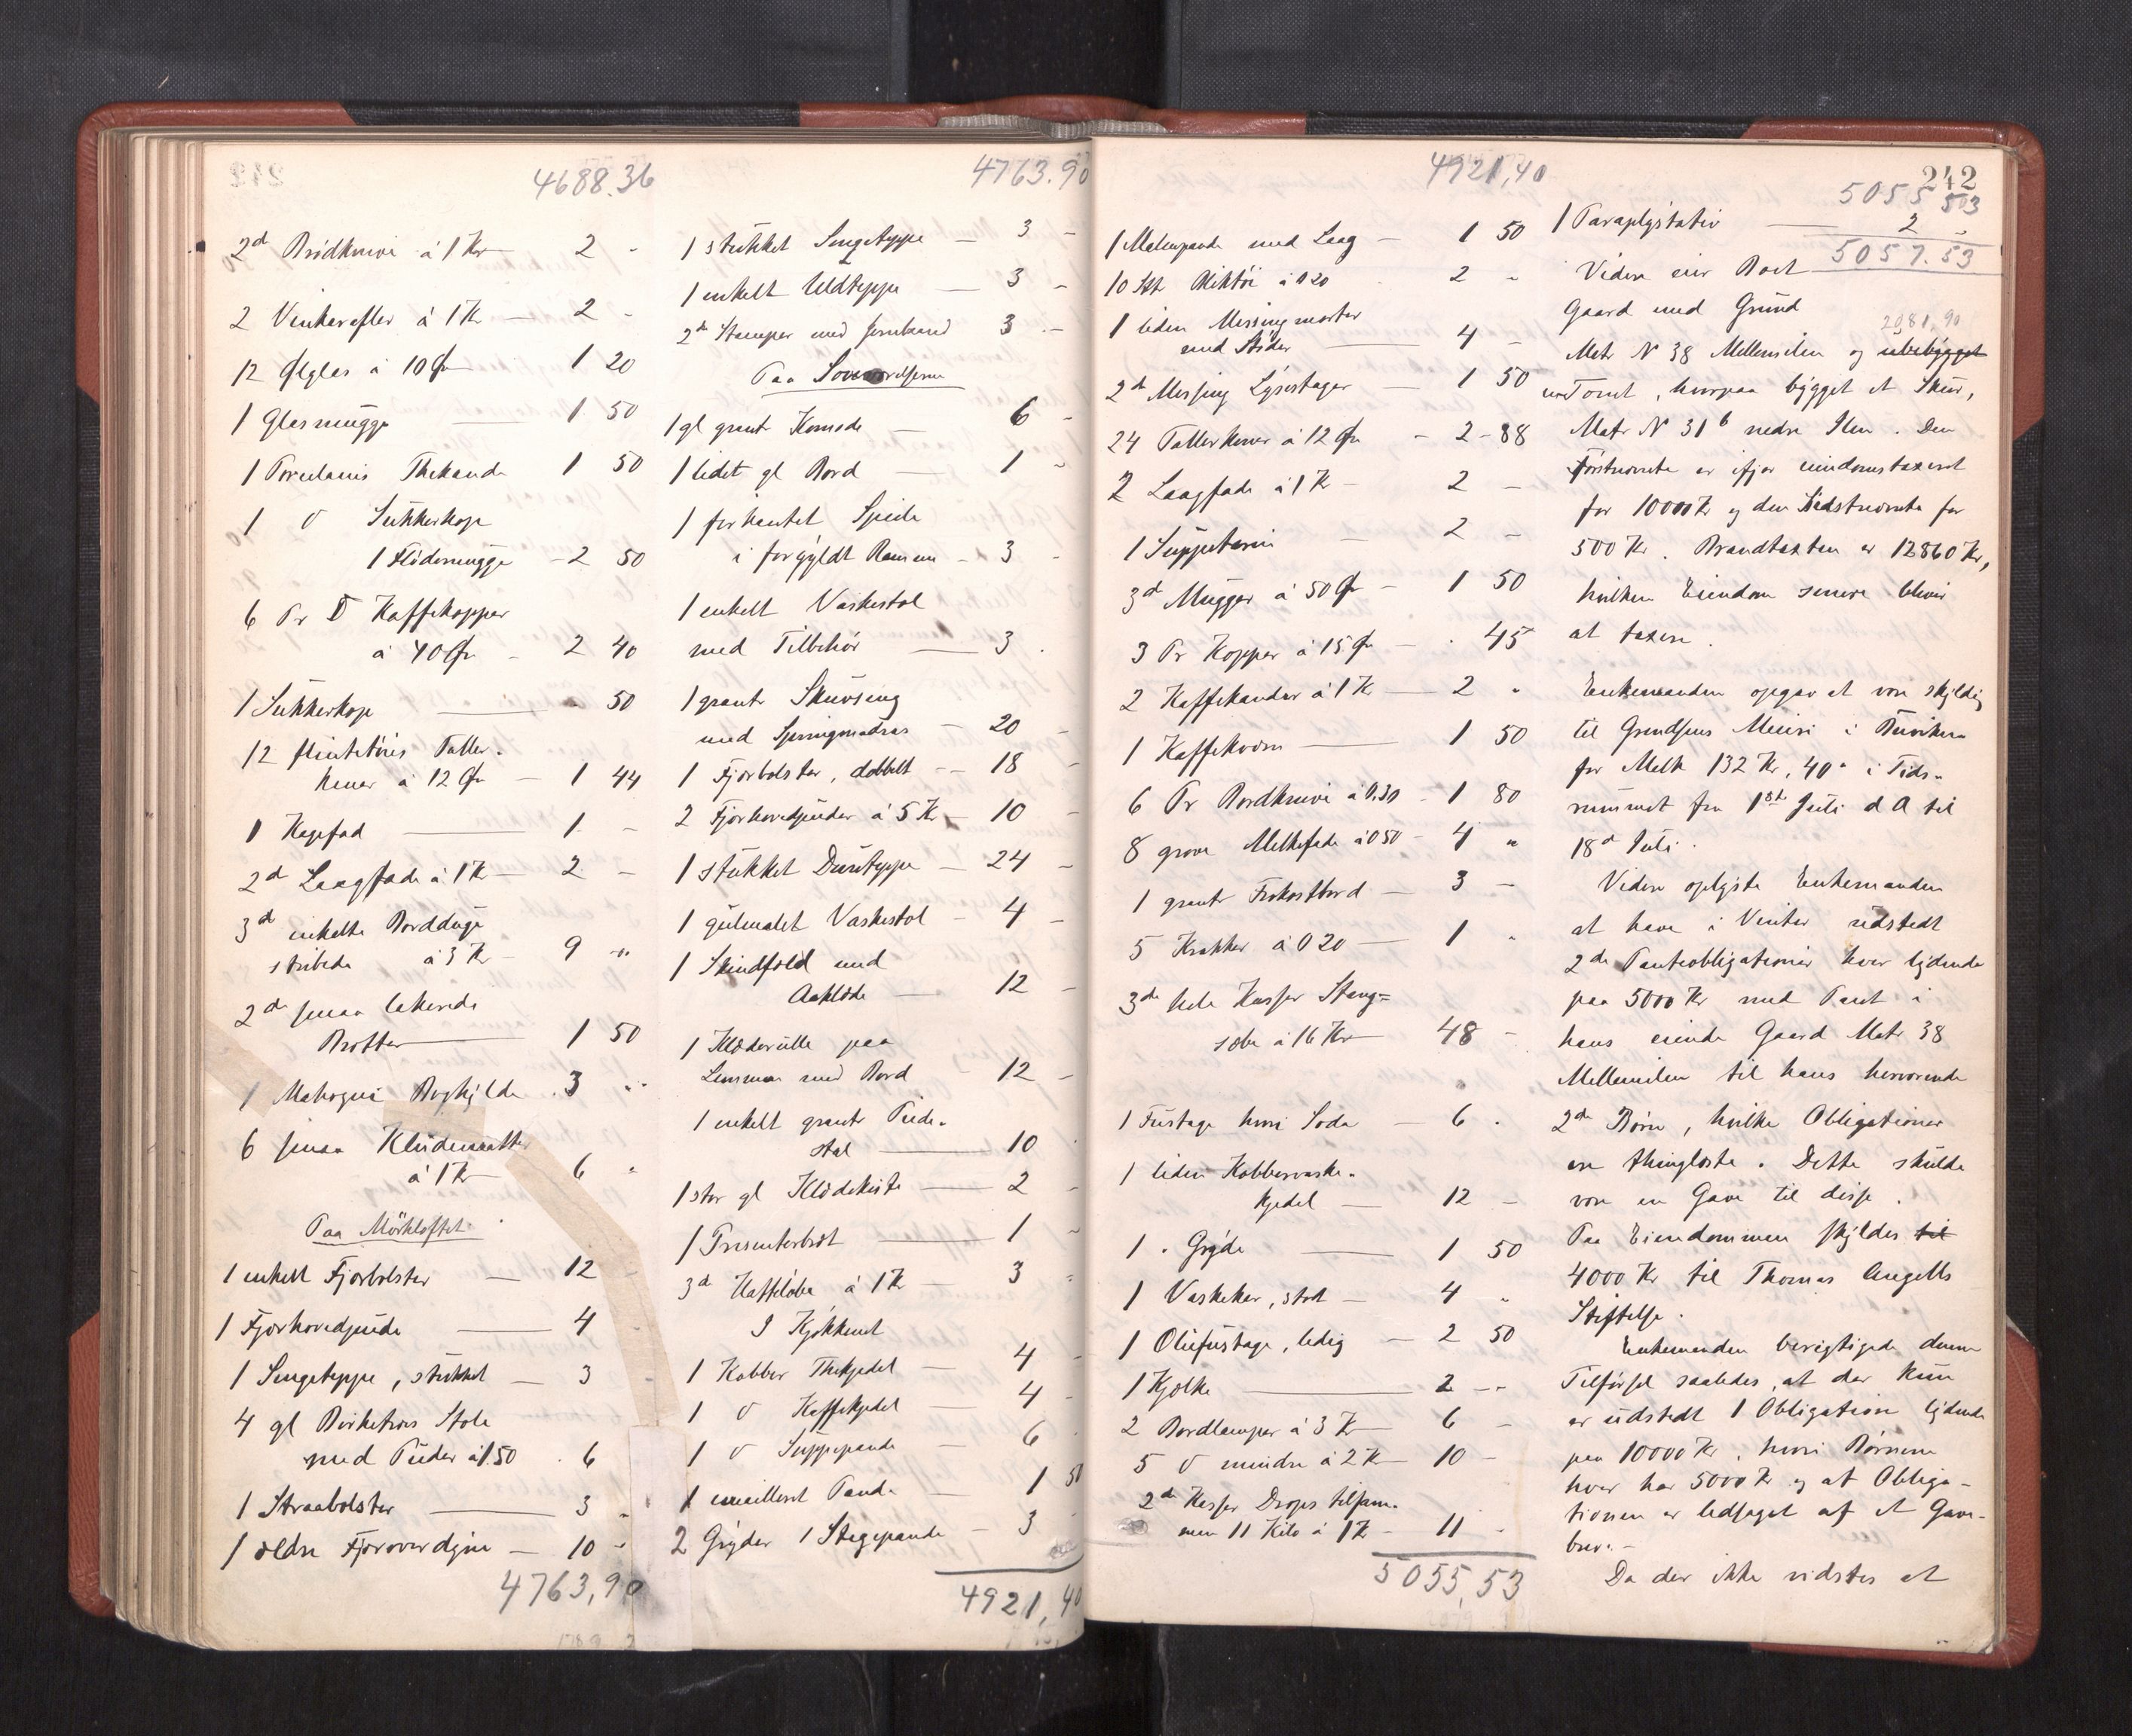 4688.36
2d Brödknive á 1 Kr 2 -
2 Vinkarafler á 1 Kr - 2 -
12 Ölglas á 10 Øre 1 20
1 Glasmugge 1 50
1 Porcelains Thekande 1 50
1 D Sukkerkop
1 Flödemugge - 2 50
6 Pr D Kaffekopper
á 40 Øre - 2 40
1 Sukkerkop - 50
12 flintetöies Taller-
kener á 12 Øre - 1 44
1 Kagefad 1 -
2d Laagfade á 1 Kr 2 -
3d enkelte Borddüge
stribede á 3 Kr 9 "
2d smaa lakerede
Bretter 1 50
1 Mahogni Boghylde 3 "
6 smaa Kludematter
á 1 Kr 6 "
Paa Mörkloftet
1 enkelt Fjærbolster - 12 -
1 Fjærhovedpude 4
1 Sengeteppe, stukket - 3
4 gl Birketræs Stole
med Puder á 1.50 6
1 Straabolster 3 "
1 ældre Fjæroverdyne - 10 -
4763,90
4763.90
1 stukket Sengeteppe - 3 -
1 enkelt Uldteppe - 3 -
2de Stamper med Jernbaand 3 -
Paa Soveværelserne
1 gl grant Komode - 6 -
1 lidet gl Bord - 1 -
1 forhentet Speile
i forgyldt Ramme - 3 -
1 enkelt Vaskestol
med Tilbehör 3 -
1 grant Skuvseng
med Springmadras - 20 -
1 Fjærbolster, dobbelt - 18 -
2 Fjærhovedpuder á 5 Kr - 10 -
1 stukket Dunteppe - 24 -
1 gulmalet Vaskestol - 4 -
1 Skindfeld med
Aaklæde - 12 -
1 Klæderulle paa
Lemmen med Bord - 12 -
1 enkelt grant Piede-
stal 10
1 stor gl Klædekiste 2 -
1 Presenterbret 1 -
3d Kaffeløber á 1 Kr 3 -
I Kjökkenet
1 Kobber Thekjedel - 4 -
1 D Kaffekjedel - 4 -
1 D Suppepande - 6
1 emailleret Pande - 1 50
2 Gryder 1 Stegepande - 3
4921,40
4921,40
1 Malmpande med Laag - 1 50
10 Stk Bliktöi á 0 20 2 -
1 liden Messingmorter
med Stöder 4 -
2de Messing Lysestager - 1 50
24 Tallerkener á 12 Øre - 2 - 88
2 Laagfade á 1 Kr - 2 -
1 Suppeterin - 2 -
3d Mugger á 50 Øre - 1 50
3 Pr Kopper á 15 Øre - . 45
2 Kaffekander á 1 Kr - 2 "
1 Kaffekværn 1 50
6 Pr Bordknive á 0.30 - 1 80
8 grove Melkefade á 0 50 - 4 "
1 grant Frokostbord - 3 -
5 Krakker á 0 20 - 1 "
3de hele Kasser Stang-
sæbe á 16 Kr 48 -
1 Fustage hvori Soda - 6 .
1 liden Kobbervaske-
kjedel - 12 -
1 " Gryde 1 50
1 Vaskekar, stort - 4 "
1 Oliefustage, ledig - 2 50
1 Kjelke 2 --
2 Bordlamper á 3 Kr - 6 -
5 D mindre á 2 Kr - 10 -
2de Kasser Drops tilsam-
men 11 Kilo á 1 Kr - 11 -
5055,53
242
5055 53
1 Paraplystativ 2 -
5057.53
Videre eier Boet
Gaard med Grund
2081,90
Matr N 38 Mellemilen og ubebygget
en Tomt, hvorpaa bygget et Skur,
Matr N 31b nedre Ilen. Den
förstnævnte er ifjor eiendomstaxeret
for 10000 Kr og den Sidstnævnte for
500 Kr. Brandtaxten er 12860 Kr,
hvilken Eiendom senere bliver
at taxere.
Enkemanden opgav at være skyldig
til Grendsens Meieri i Buviken
for Melk 132 Kr, 40 " i Tids-
rummet fra 1ste Juli d A til
18de Juli.
Videre oplyste Enkemanden
at have i Vinter udstedt
2de Panteobligationer hver lydende
paa 5000 Kr med Pant i
hans eiende Gaard Matr 38
Mellemilen til hans herværende
2de Börn, hvilke Obligationer
ere thinglæste. Dette skulde
være en Gave til disse.
Paa Eiendommen skyldes til
4000 Kr til Thomas Angells
Stiftelse.
Enkemanden berigtigede denne
Tilförsel saaledes, at der kun
er udstedt 1 Obligation lydende
paa 10000 Kr, hvori Börnene
hver har 5000 Kr og at Obliga-
tionen er ledsaget af et Gave-
brev. -
Da der ikke vidstes at